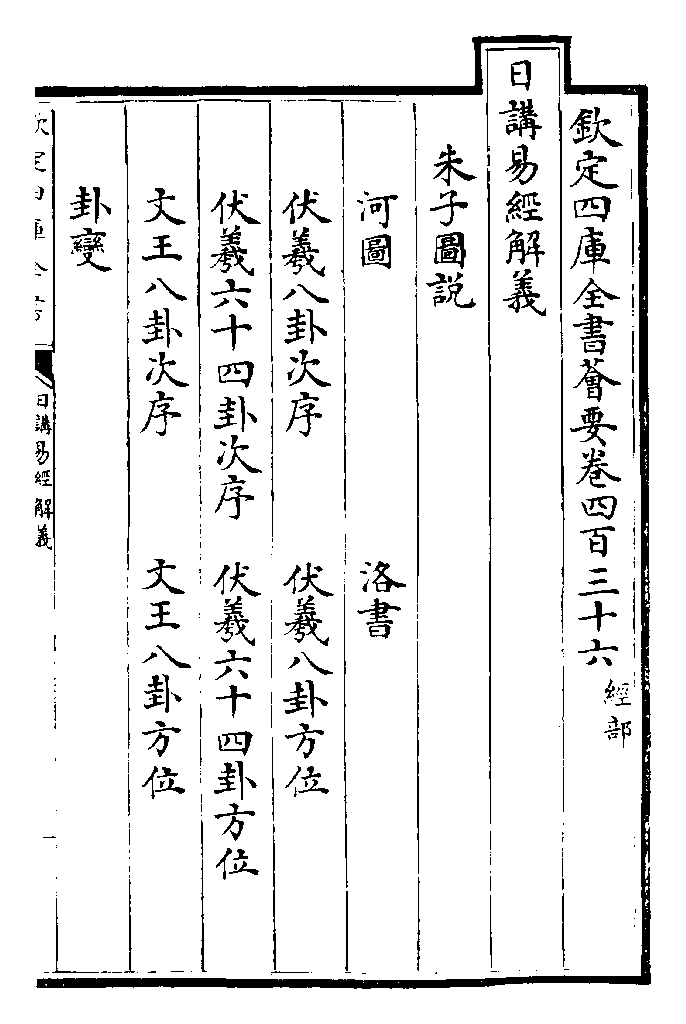 欽定四庫全書薈要卷四百三十六 經部
日講易經解義
朱子圖説
河圖 洛書
伏羲八卦次序 伏羲八卦方位
伏羲六十四卦次序 伏羲六十四卦方位
文王八卦次序 文王八卦方位
卦變
欽定四庫全書 日講易經解義 一